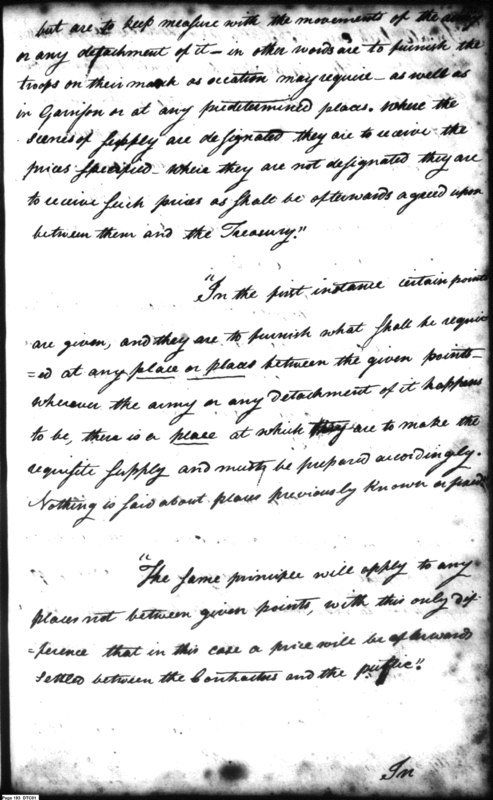 but are to keep measure with the movements of the army
or any detachment of it – in other words are to furnish the
troops on their march as occation may require – as well as
in Garrison or at any predetermined places. Where the
scenes of Supply are designated they are to receive the
prices specified – where they are not designated they are
to receive such prices as shall be afterwards agreed upon
between them and the Treasury."
"In the first instance certain points
are given, and they are to furnish what shall be requir
=ed at any place or places between the given points –
wherever the army or any detachment of it happens
to be, there is a place at which they are to make the
requisite supply and must be prepared accordingly.
Nothing is said about places previously known or fixed
"The same principle will apply to any
places not between given points, with this only dif-
=ference that in this case a price will be afterwards
settled between the Contractors and the public."
In
Page 163 DTC01